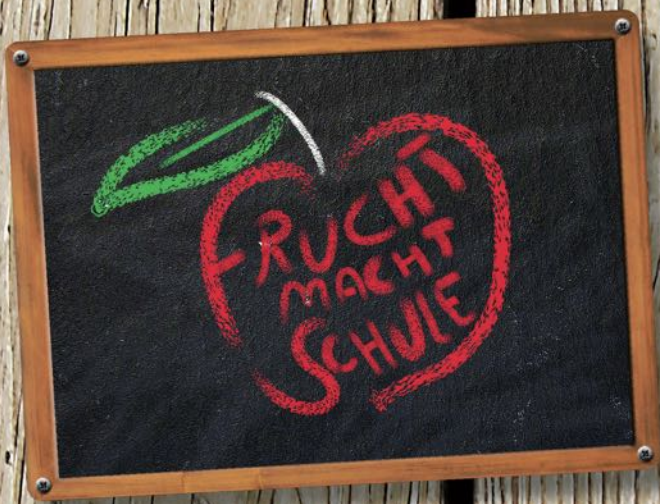 FRUCHT
MACHT
SCHULE